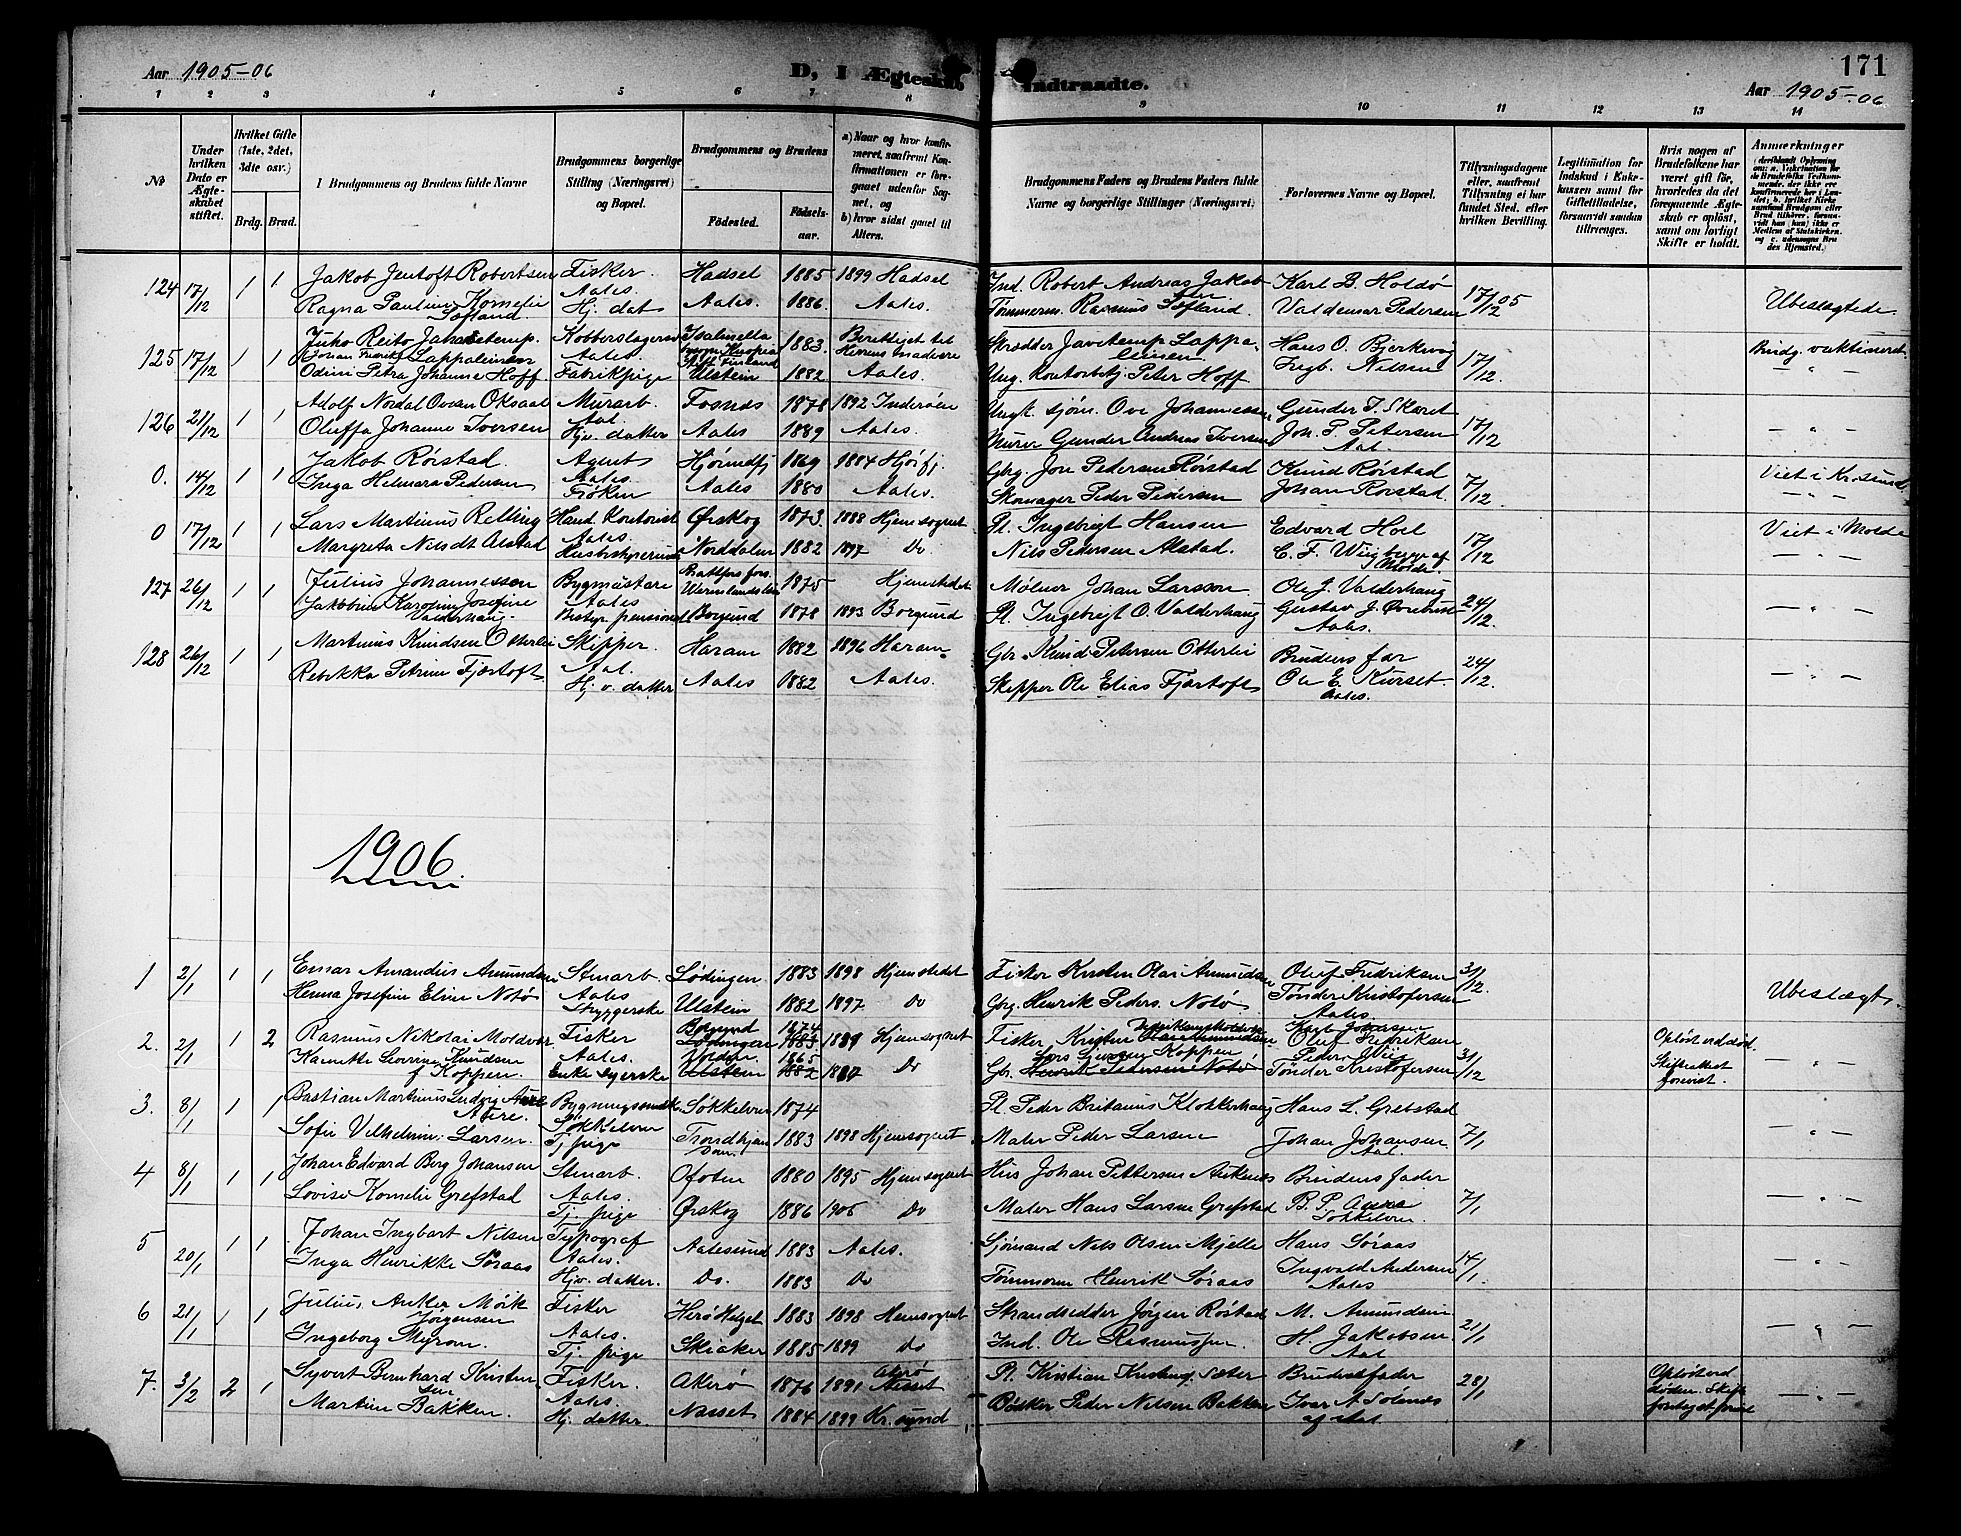 Aar 1905-06
D, I Ægteskab Indtraadte.
171
Aar 1905-06
1 2 3 4 5 6 7 8 9 10 11 12 13 14
No
Under hvilken Dato er Ægteskabet stiftet.
Hvilket Gifte (1ste, 2det, 3dte osv.)
Brdg. Brud.
I Brudgommens og Brudens fulde Navne
Brudgommens borgerlige Stilling (Næringsvei) og Bopæl.
Brudgommens og Brudens
Fødested. Fødselsaar.
a) Naar og hvor konfirmeret, saafremt Konfirmationen er foregaaet udenfor Sognet, og
b) hvor sidst gaaet til Alters.
Brudgommens Faders og Brudens Faders fulde Navne og borgerlige Stillinger (Næringsvei).
Forlovernes Navne og Bopæl.
Tillysningsdagene eller, saafremt Tillysning ei har fundet Sted, efter hvilken Bevilling.
Legitimation for Indskud i Enkekassen samt for Giftetilladelse, forsaavidt saadan tiltrænges.
Hvis nogen af Brudefolkene har været gift før, hvorledes da det foregaaende Ægteskab er opløst, samt om lovligt Skifte er holdt.
Anmerkninger
124 17/12 1 1 Jakob Jentoft Robertsen Fisker. Hadsel 1885 1899 Hadsel Ind. Robert Andreas Jakobsen Karl B. Holdø 17/12 05 Ubeslægtede
Aales.
Ragna Pauline Kornelie Søfland. Hj. dat Aales. 1886. Aales. Tømmerm. Rasmus Søfland. Valdemar Pedersen
125 17/12 1 1 Juho Reito Kobberslager 1883. Berettiget til Skrædder Hans O. Bjerkevig 17/12. Brudg. vaktineret
Johan Fredrik Lappaleinen Aales.
Odine Petra Johanne Hoff Fabrikpige Ulstein 1882 Aales. Ung. Kontorbetj. Peter Hoff Ingb. Nilsen
126 21/12 1 1 Adolf Nordal Ovean Oksaal Murarb. Fosnes 1878 1892 Inderøen Ungk. sjøm. Ove Johannessen Gunder J. Skaret 17/12 — " —
Aal.
Oluffa Johanne Iversen Hjv. datter Aales 1889 Aales. Murer Gunder Andreas Iversen Joh. P. Petersen
Aal.
0. 14/12 1 1 Jakob Rørstad. Agent Hjørundfj 1869 1884 Hjørfj. Gbrg. Jon Pedersen Rørstad Knud Rørstad 7/12 Viet i Kr.sund
Aales.
Inga Helmara Pedersen Frøken Aales 1880 Aales. Skomager Peder Pedersen Johan Rørstad.
0 17/12 1 1 Lars Martinus Relling Hand. Kontorist Ørskog 1873. 1888 Hjemsognet Pl. Ingebrigt Hansen Edvard Hoel 17/12 Viet i Molde
Aales.
Margreta Nilsdt Alstad Husbestyrerinde Norddalen 1882 1897 Do Nils Pedersen Alstad. C. F. Wiig begge af Molde.
127 26/12 1 1 Julius Johannessen Bygmestare 1875 Hjemstedet Mølner Johan Larsson Ole J. Valderhaug 24/12. — " —
Wermlandslän
Aales
Jakobine Karoline Josefine Valderhaug. Bestyr. pensionat Borgund 1878 1893 Borgund Pl. Ingebrigt O. Valderhaug Gustav J.
Aales.
128 26/12 1 1 Martinus Knudsen Otterlei Skipper. Haram 1882 1896 Haram Gbr. Knud Petersen Otterlei Brudens far 24/12. — " —
Aal.
Rebekka Petrine Fjørtoft. Hj. v. datter Aales 1882 Aales. Skipper Ole Elias Fjørtoft Ole E. Kurset.
Aales.
1906.
1 2/1 1 1 Einar Amandus Amundsen Stenarb. Lødingen 1883 1898 Hjemstedet Fisker Kristen Olai Amundsen Oluf Fredriksen 31/12 Ubeslægt.
Aales
Henna Josefine Eline Notø Strygerske Ulstein 1882 1897 Do Gbrg. Henrik Peders. Notø Tønder Kristofersen
Aales.
2. 2/1 1 2 Rasmus Nikolai Moldvær Fisker Borgund 1874 1889 Hjemsognet Fisker Kristen Olai Amundsen Karl Johansen Opløst ved død. — " —
Lødingen 1883 Oluf Fredriksen
Aales. Norddn. 1865 Lars Koppen Peder Wiig 31/12 Skifteattest forevist.
Knudsen f. Koppen. Enke Syerske Ulstein 1882 Do Gbr. Henrik Pedersen Notø Tønder Kristofersen
3. 8/1 1 1 Bastian Martinus Ludvig Aure Bygningssnedk. Søkkelven 1874 Pl. Peder Britanus Klokkerhaug Hans L. Grebstad 7/1 — " —
Aure. Søkkelven
Sofie Vilhelmine Larsen. Tj. pige Trondhjem 1883 1898 Hjemsognet Maler Peder Larsen Johan Johansen
Aal.
4 8/1 1 1 Johan Edvard Berg Johansen Stenarb. Ofoten 1880 1895 Hjemsognet Hus Johan Pettersen Brudens fader 7/1 — " —
Aales.
Lovise Kornelie Grefstad Tj. pige Ørskog 1886 1906 Do Maler Hans Larsen Grefstad B. P. Aure
Søkkelven.
5 20/1 1 1 Johan Ingbart Nilsen Typograf Aalesund 1883 Aales. Sjømand Nils Olsen Mjelle Hans Søraas 14/1. — " —
Aales.
Inga Henrikke Søraas Hjv. datter. Do. 1883 Do Tømmerm Henrik Søraas Ingvald Andersen
Aales
6 21/1 1 1 Julius Anker Mørk Fisker Herø Helgel 1883 1898 Hemsognet Strandsidder Jørgen Røstad M. Amundsen 21/1 — " —
Jørgensen Aales.
Ingeborg Myrom. Tj. pige Skiaker 1885 1899 Do Ind. Ole Rasmussen H. Jakobsen
Aal
7. 3/2 2 1 Syvert Bernhard Kristensen Fisker. Akerø 1876 1891 Akerø Nesset Pl. Kristian Sæter Brudens fader 28/1 Opløst ved døden. Skifte — " —
Aales.
Martine Bakken. Hj. datter. Næsset 1884 1899 Kr.sund Bødker Peder Nilsen Bakken Ivar A Solends
af Aal